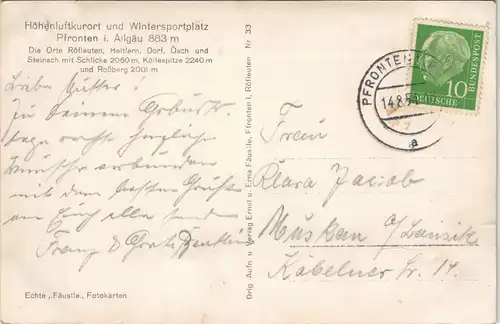 Höhenluftkurort und Wintersportplatz
Pfronten i. Allgäu 883 m
Die Orte Röfleuten, Heitlern, Dorf, Ösch und
Steinach mit Schlicke 2060 m, Köllespitze 2240 m
und Roßberg 2001 m
Liebe Mutter!
Zu Deinem Geburts-
tage recht herzliche
Wünsche verbunden
mit dem besten Grüßen
an Euch alle senden
Franz &
Echte „Fäustle„ Fotokarten
Orig. Aufn u Verlag Ernst u. Erna Fäustle, Pfronten i. Röfleuten Nr 33
PFRONTEN
14.8.5
a
10
DEUTSCHE
BUNDESPOST
Frau
Klara Jacob
Muskau
Köbelner Str. 14.